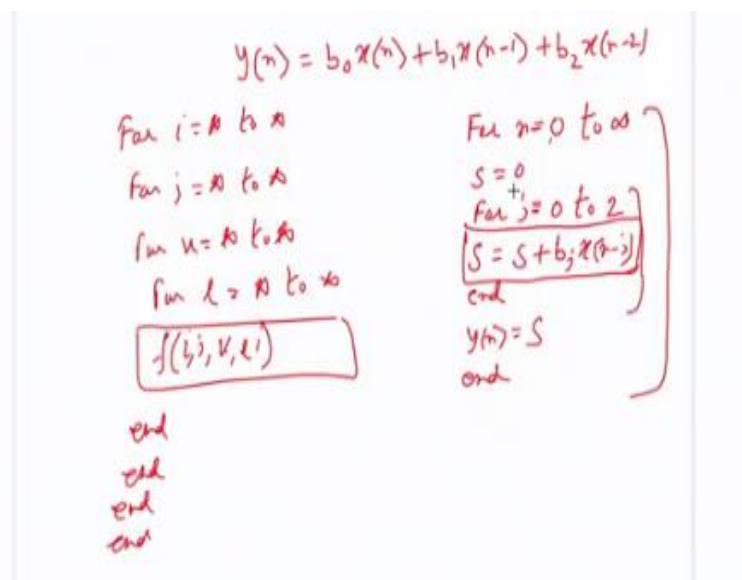 y(n) = b₀x(n) + b₁x(n-1) + b₂x(n-2)
For i = * to *
For j = * to *
For k = * to *
For l = * to *
f(i, j, k, l)
end
end
end
end
For n=0 to ∞
S = 0
For j= 0 to 2
S = S + bⱼ x(n-j)
end
y(n) = S
end